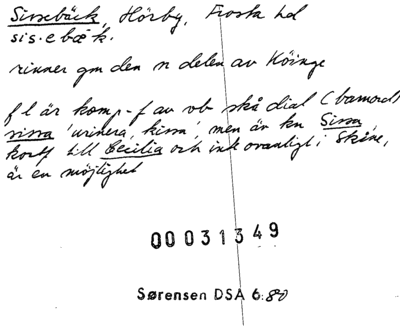 Sissebäck, Hörby, Frosta hd
sis.e bæk.
rinner gm den n delen av Köinge
f l är komp-f av vb skå dial (barnord)
sissa 'urinera, kissa', men är kn Sissa,
kortf till Cecilia och ink ovanligt i Skåne,
är en möjlighet
00031349
Sørensen DSA 6:80